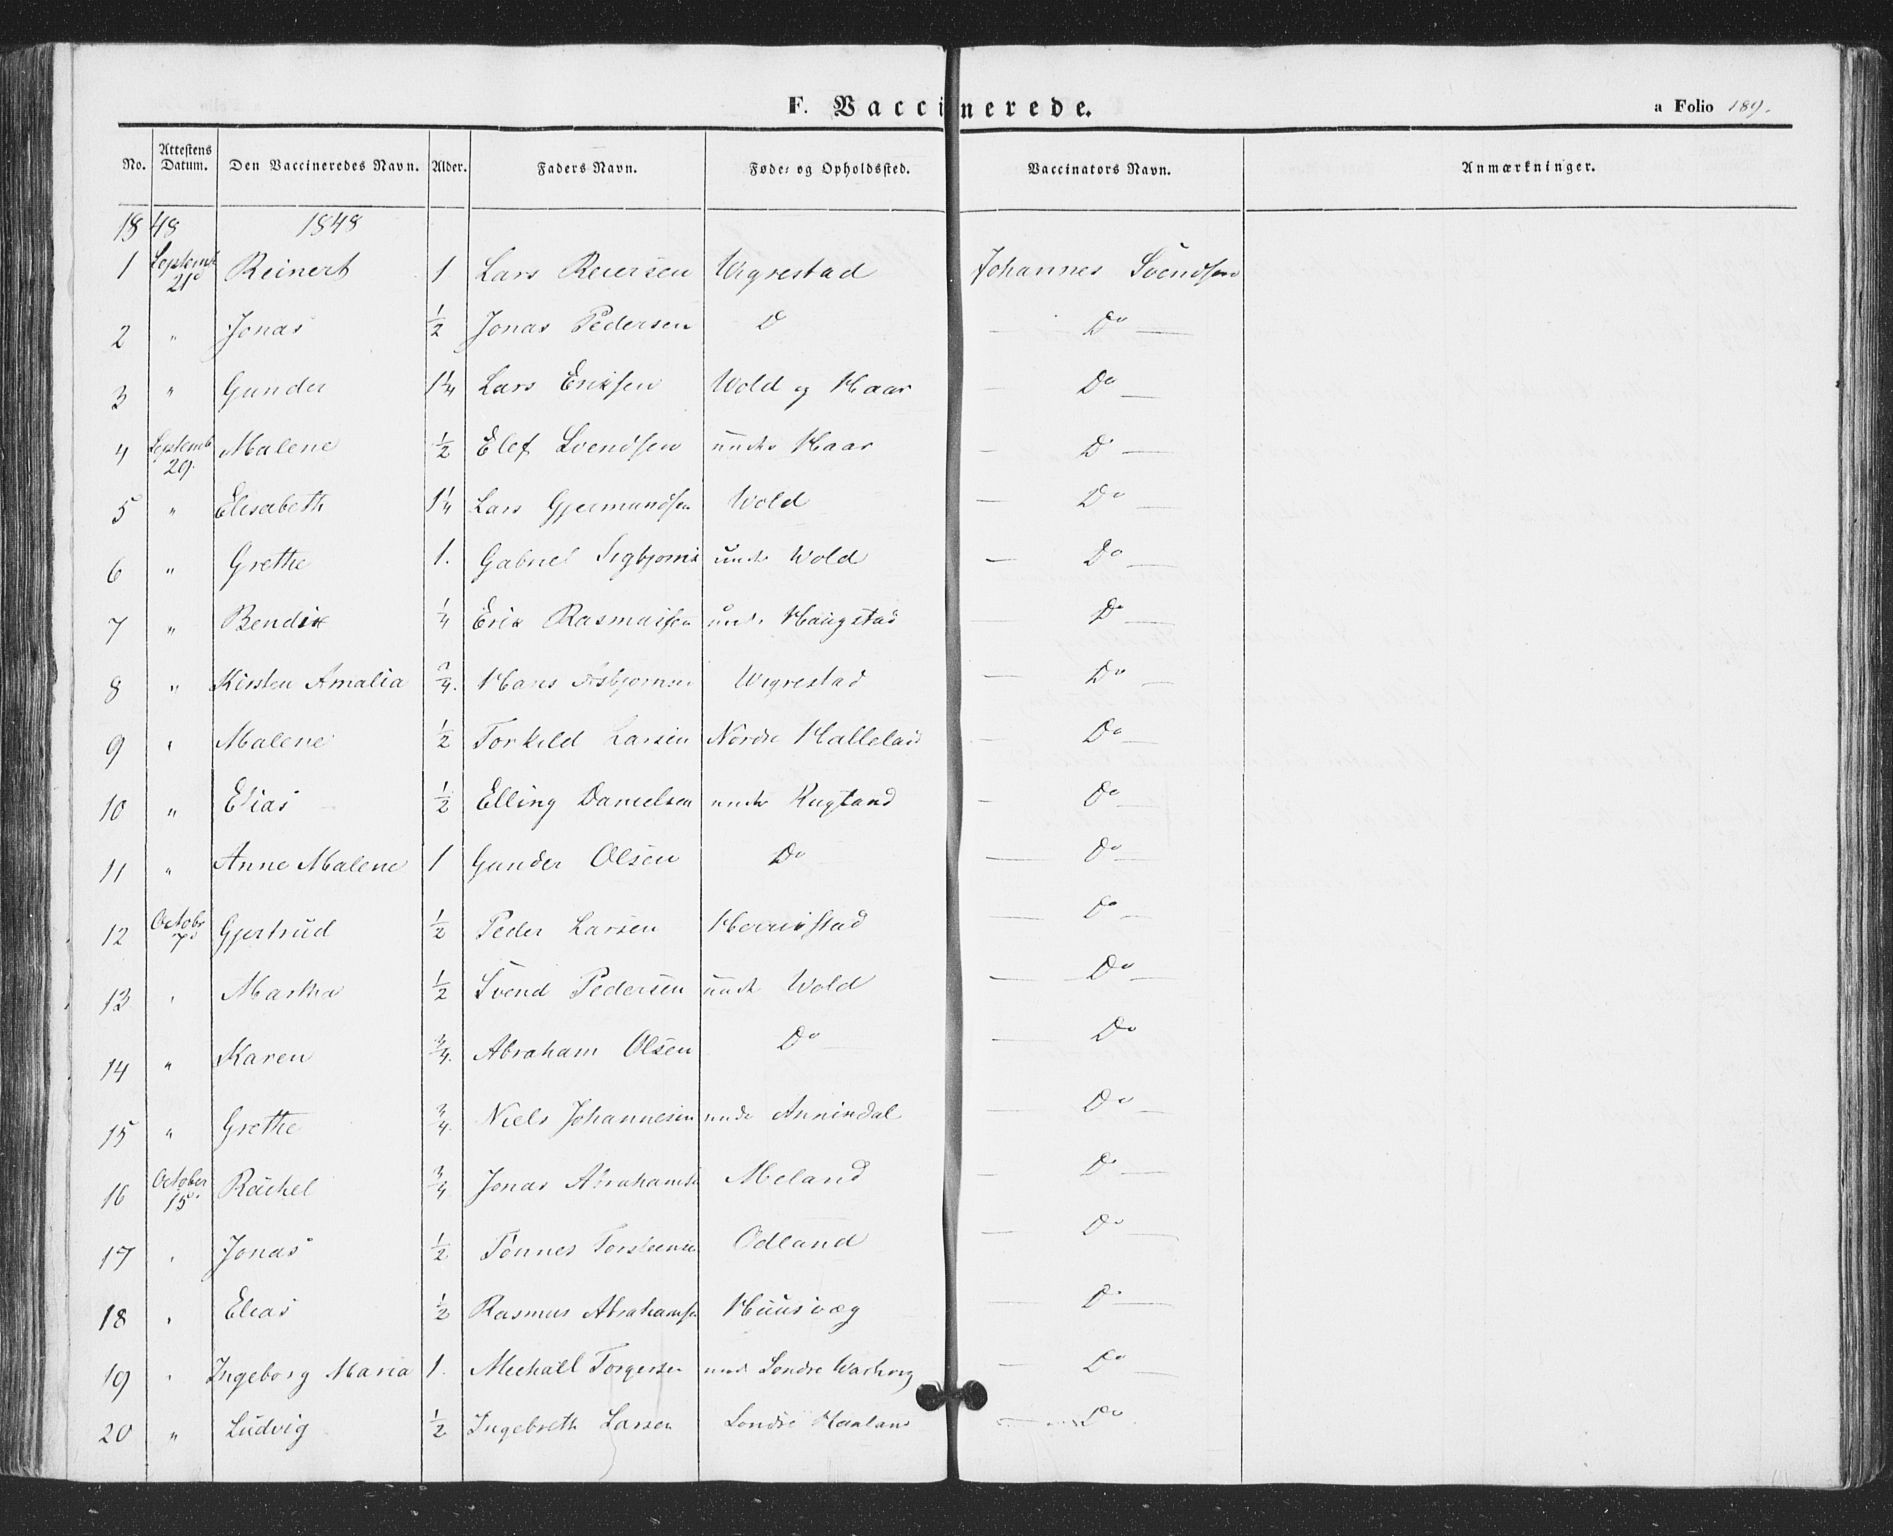 F. Vaccinerede.
a Folio 189.
No. Attestens Datum. Den Vaccineredes Navn. Alder. Faders Navn. Føde- og Opholdssted. Vaccinators Navn. Anmærkninger.
1848 1848
1 Septemb 21d Reinert 1 Lars Reiersen Wigrestad Johannes Svendsen
2 " Jonas 1/2 Jonas Pedersen D Do
3 " Gunder 1 1/4 Lars Eriksen Wold og Haar Do
4 Septemb 29. Malene 1/2 Elef Svendsen under Haar Do
5 " Elisabeth 1 1/4 Lars Gjermundsen Wold Do
6 " Grethe 1. Gabriel Sigbjørns under Wold Do
7 " Bendix 1/4 Erik Rasmussen under Haugstad Do
8 " Kirsten Amalia 3/4. Hans Asbjørnsen Wigrestad Do
9 " Malene 1/2 Torkild Larsen Nordre Do
10 " Elias 1/2 Elling Danielsen under Do
11 " Anne Malene 1 Gunder Olsen Do Do
12 Octobr 7d Gjertrud 1/2 Peder Larsen Do
13 " Martha 1/2 Svend Pedersen under Wold Do
14 " Karen 3/4. Abraham Olsen Do Do
15 " Grethe 3/4. Niels Johannesen under Annindal Do
16 October 15d. Rachel 3/4 Jonas Abrahams Meland Do
17 " Jonas 1/2 Tønnes Torsteensen Odland Do
18 " Elias 1/2 Rasmus Abrahamsen Huusvæg Do
19 " Ingeborg Maria 1. Michaël Torgersen under Søndre Do
20 " Ludvig 1/2 Ingebreth Larsen Søndre Do